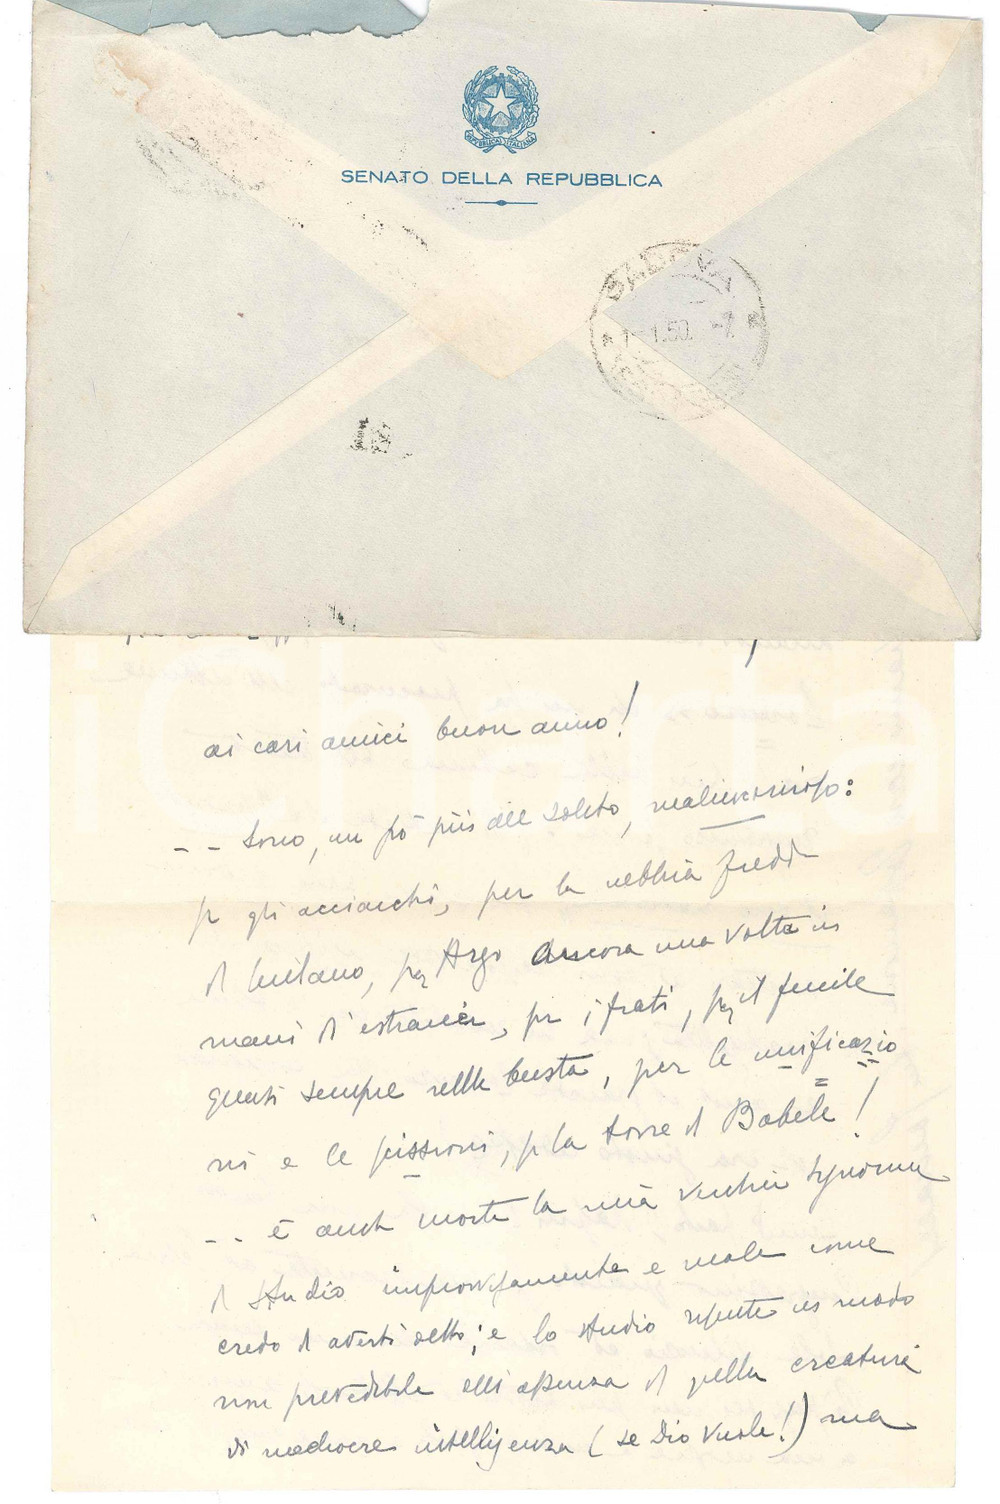 REPUBBLICA ITALIANA
SENATO DELLA REPUBBLICA
PADOVA
1.50. -7
ai cari amici buon anno!
-- Sono, un pò più del solito, malinconioso:
pr gli acciacchi, per la nebbia fredda
di Milano, per Argo ancora una volta in
mani d'estranei, pr i frati, per il fucile
quasi sempre nella busta, per le unificazio
ni e le scissioni, pr la torre di Babele!
-- è anche morta la mia vecchia Signorina
di studio improvvisamente e male come
credo di averti detto; e lo studio risente in modo
non prevedibile dell'assenza di quella creatura
di mediocre intelligenza (se Dio vuole!) ma